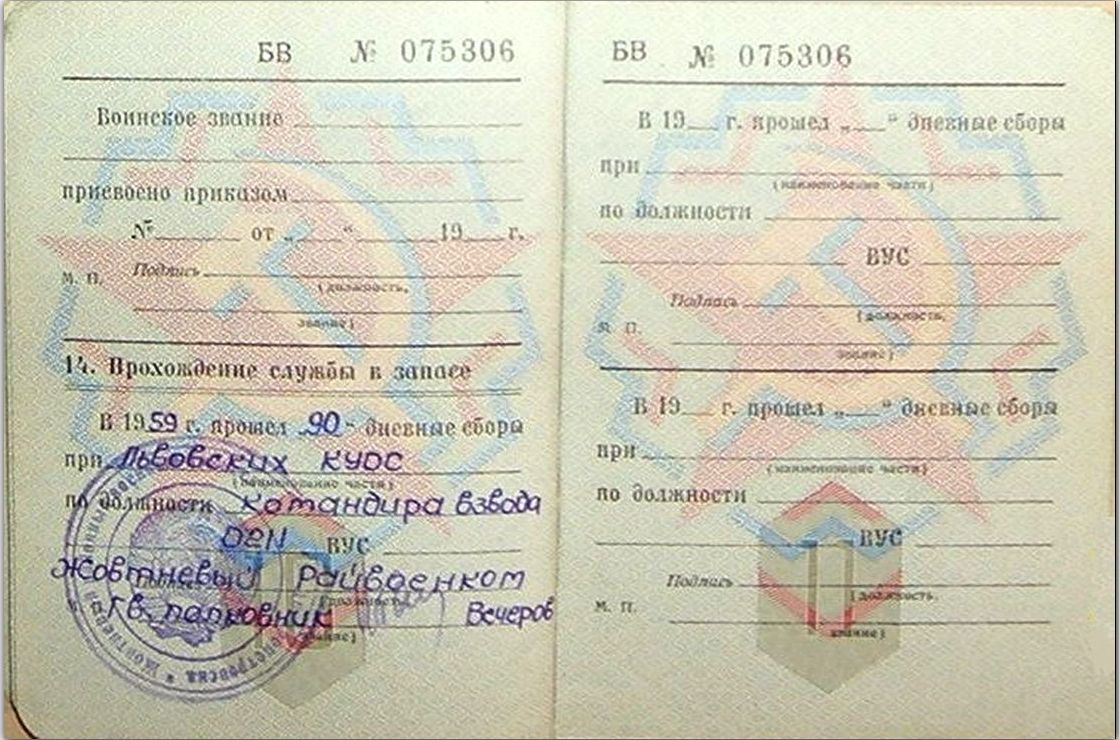 БВ № 075306
Воинское звание
присвоено приказом
№ от „ “ 19 г.
М. П. Подпись
(должность,
звание)
14. Прохождение службы в запасе
В 1959 г. прошел „90“ дневные сборы
при Львовских КУОС
(наименование части)
по должности командира взвода
ОСН ВУС
Жовтневый Райвоенком
Подпись
(должность,
Гв. полковник Вечеров
звание)
БВ № 075306
В 19 г. прошел „ “ дневные сборы
при
(наименование части)
по должности
ВУС
Подпись
(должность,
М. П.
звание)
В 19 г. прошел „ “ дневные сборы
при
(наименование части)
по должности
ВУС
Подпись
(должность.
М. П.
звание)